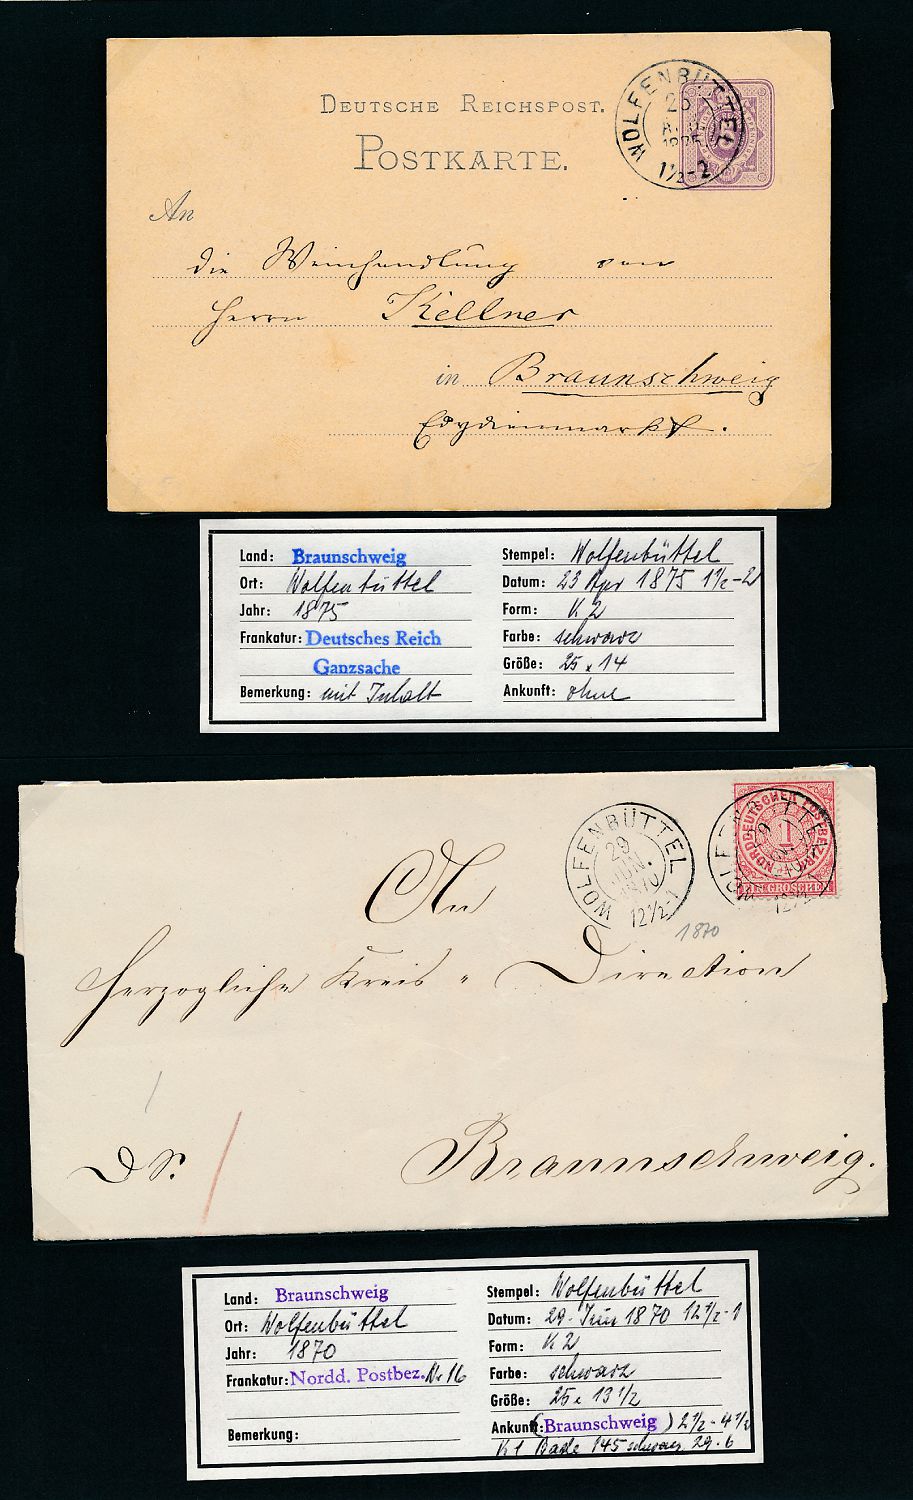 DEUTSCHE REICHSPOST.
POSTKARTE.
WOLFENBÜTTEL
1875
1½-2
An
die Weinhandlung von
Herrn Kellner
in Braunschweig
Land: Braunschweig
Ort: Wolfenbüttel
Jahr: 1875
Frankatur: Deutsches Reich
Ganzsache
Bemerkung: mit Inhalt
Stempel: Wolfenbüttel
Datum: 23 Apr 1875 1½-2
Form: K2
Farbe: schwarz
Größe: 25 x 14
Ankunft: ohne
WOLFENBÜTTEL
29
JUN.
1870
12½-1
NORDDEUTSCHER POSTBEZIRK
1
EIN GROSCHEN
WOLFENBÜTTEL
12½-1
1870
An
Herzogliche Kreis-Direction
Braunschweig.
Land: Braunschweig
Ort: Wolfenbüttel
Jahr: 1870
Frankatur: Nordd. Postbez. Nr 16
Bemerkung:
Stempel: Wolfenbüttel
Datum: 29. Jun 1870 12½-1
Form: K2
Farbe: schwarz
Größe: 25 x 13½
Ankunft: (Braunschweig) 2½-4½
K1 145 schwarz 29.6